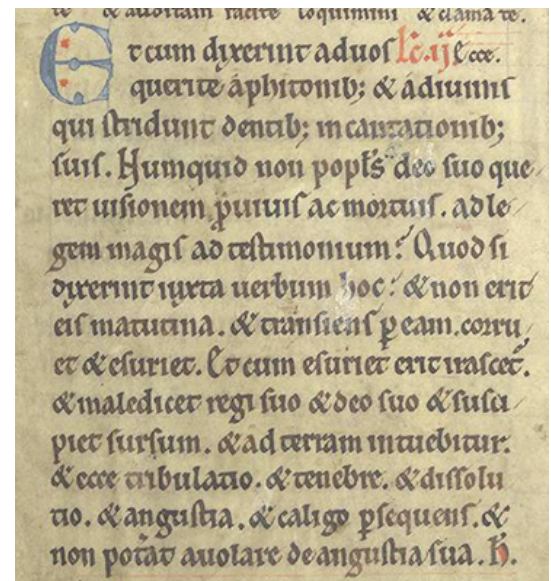 te & auditam facite loquimini & clamate.
Et cum dixerint ad uos lc. ij Ecce.
querite aphitonib; & adiuinis
qui stridunt dentib; in cantationib;
suis. Numquid non popls deo suo que
ret uisionem puiuis ac mortuis. ad le
gem magis ad testimonium? Quod si
dixerint iuxta uerbum hoc: & non erit
eis matutina. & transiens p eam. corru
et & esuriet. Et cum esuriet erit irascet.
& maledicet regi suo & deo suo & susci
piet sursum. & ad terram intuebitur.
& ecce tribulatio. & tenebre. & dissolu
tio. & angustia. & caligo psequens. &
non potat auolare de angustia sua. R.